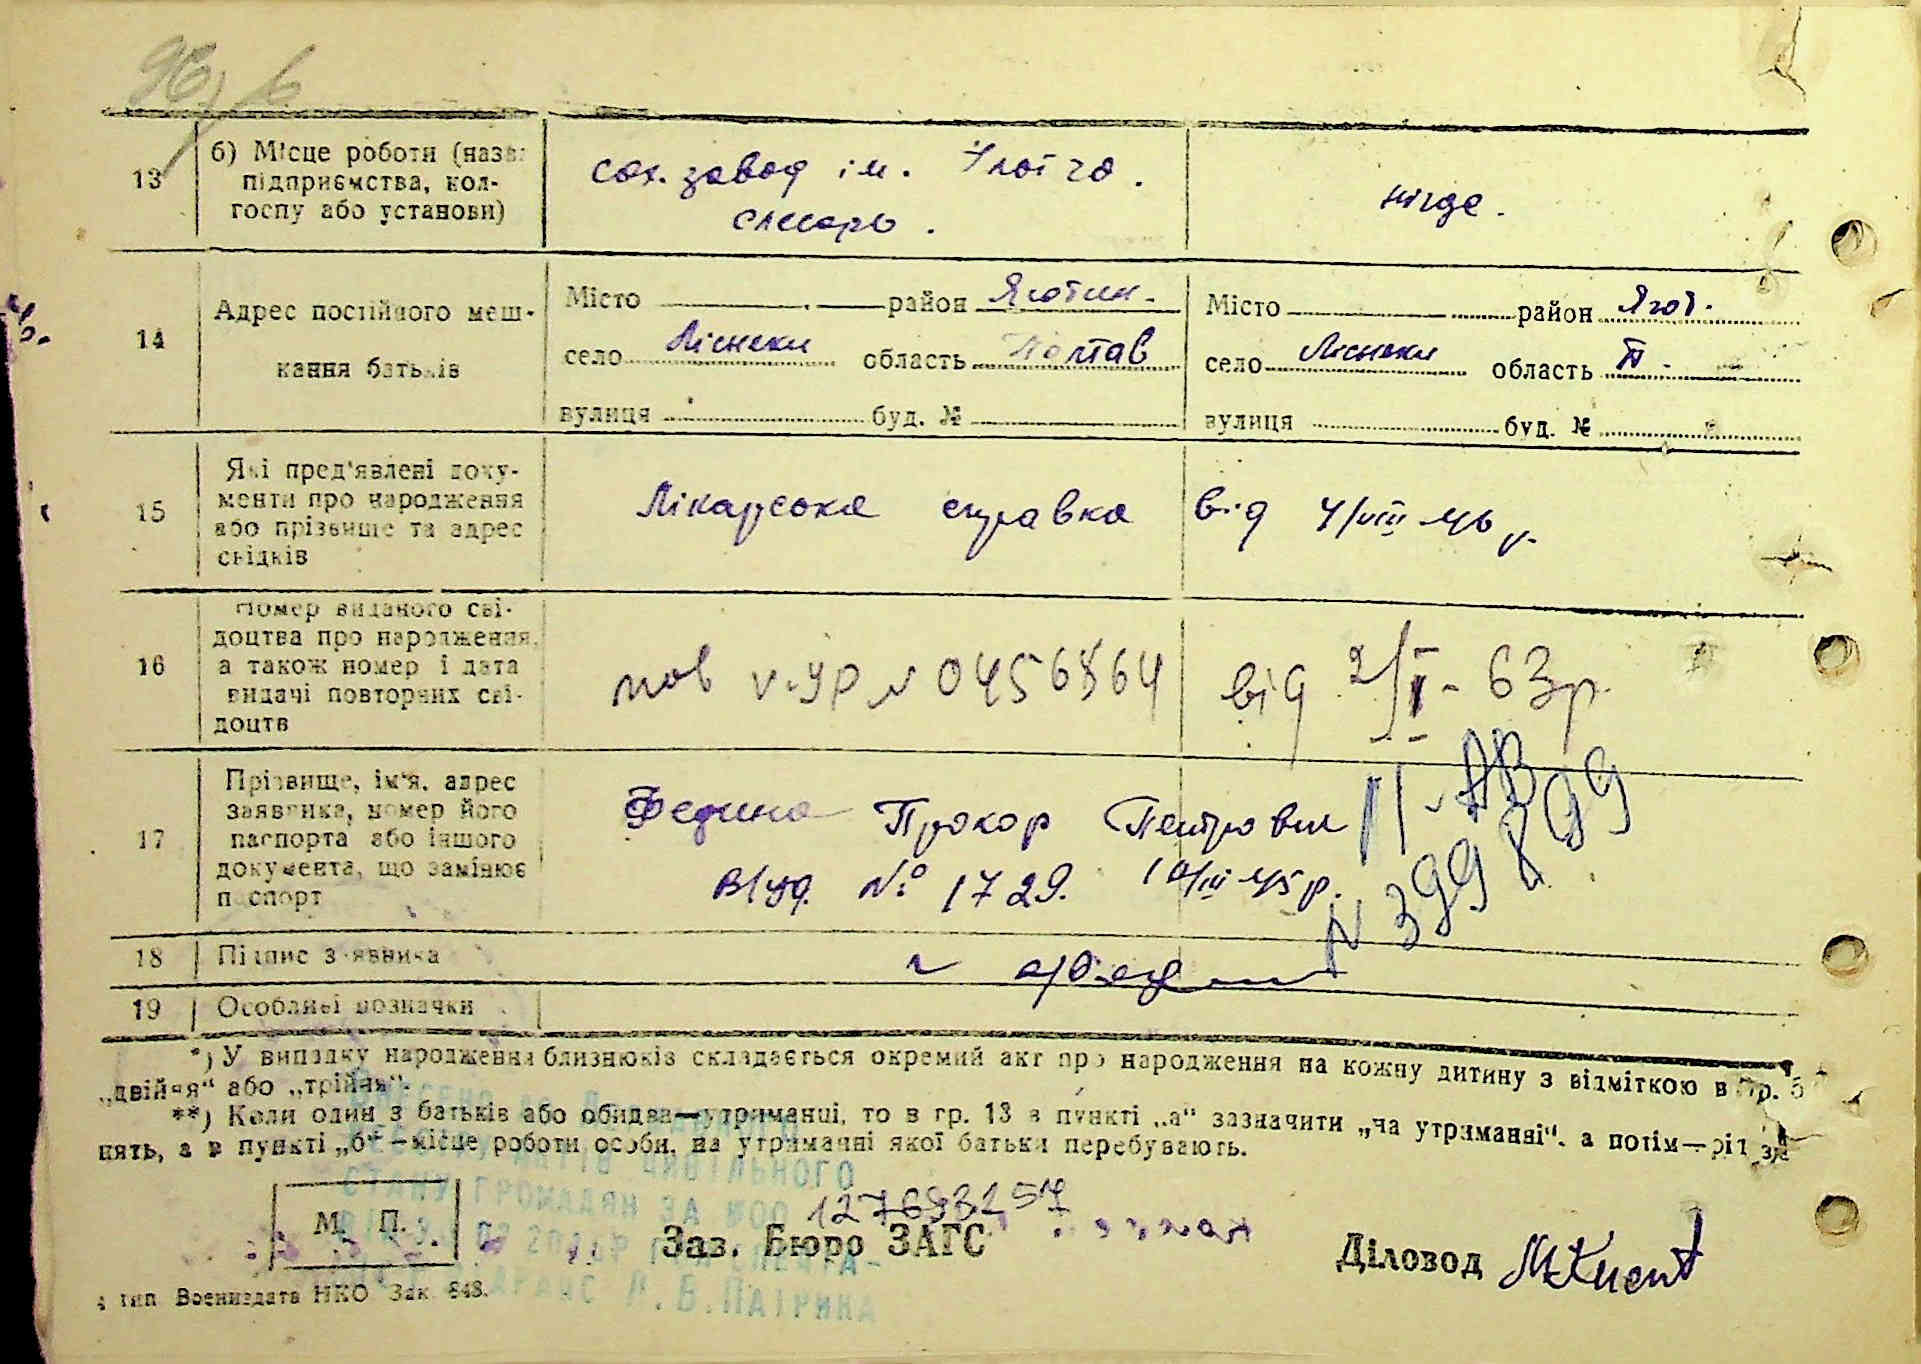 13 б) Місце роботи (назва
підприємства, кол-
госпу або установи)
сах. завод ім. Ілліча.
слесарь.
нігде.
14 Адрес постійного меш-
кання батьків
Місто район Яготин.
село Лісняки область Полтав
вулиця буд. №
Місто район Ягот.
село Лісняки область П.
вулиця буд. №
15 Які пред'явлені доку-
менти про народження
або прізвище та адрес
свідків
Лікарська справка від 4/VIII 46 р.
16 Номер виданого сві-
доцтва про народження,
а також номер і дата
видачі повторних сві-
доцтв
пов V-УР № 0456864 від 2/I - 63 р.
17 Прізвище, ім'я, адрес
заявника, номер його
паспорта або іншого
документа, що замінює
паспорт
Федина Прокор Петрович
в/уд. № 1729. 10/III 45 р.
II-АВ
N 399899
18 Підпис заявника
19 Особливі позначки
*) У випадку народження близнюків складається окремий акт про народження на кожну дитину з відміткою в гр. 5
„двійня“ або „трійня“.
**) Коли один з батьків або обидва—утриманці, то в гр. 13 в пункті „а“ зазначити „на утриманні“, а потім—рід за-
нять, а в пункті „б“—місце роботи особи, на утриманні якої батьки перебувають.
ЦИВІЛЬНОГО
СТАНУ ГРОМАДЯН ЗА
127693257
М. П.
Зав. Бюро ЗАГС
Діловод
тип Воениздата НКО Зак 848.